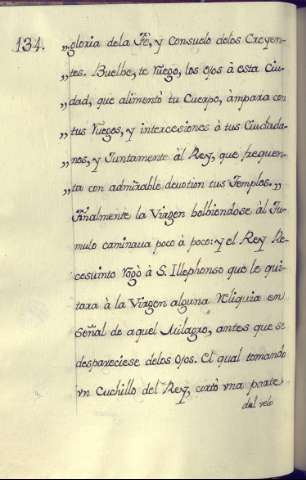 134.
„gloria dela Fè, y Consuelo delos Creyen-
„tes. Buelbe, te Ruego, los ojos à esta Ciu-
„dad, que alimentò tu Cuerpo, àmpara con
„tus Ruegos, y intercesiones à tus Ciudada-
„nos, y Juntamente àl Rey, que frequen-
„ta con admirable devotion tus Templos.„
Finalmente la Virgen bolbiendose àl Tu-
mulo caminaua poco à poco: y el Rey Re-
cesuinto rogò à S. Illephonso que le qui-
tara à la Virgen alguna Reliquia en
Señal de aquel Milagro, antes que se
despareciese delos ojos. El qual tomando
vn Cuchillo del Rey, cortò vna parte
del velo